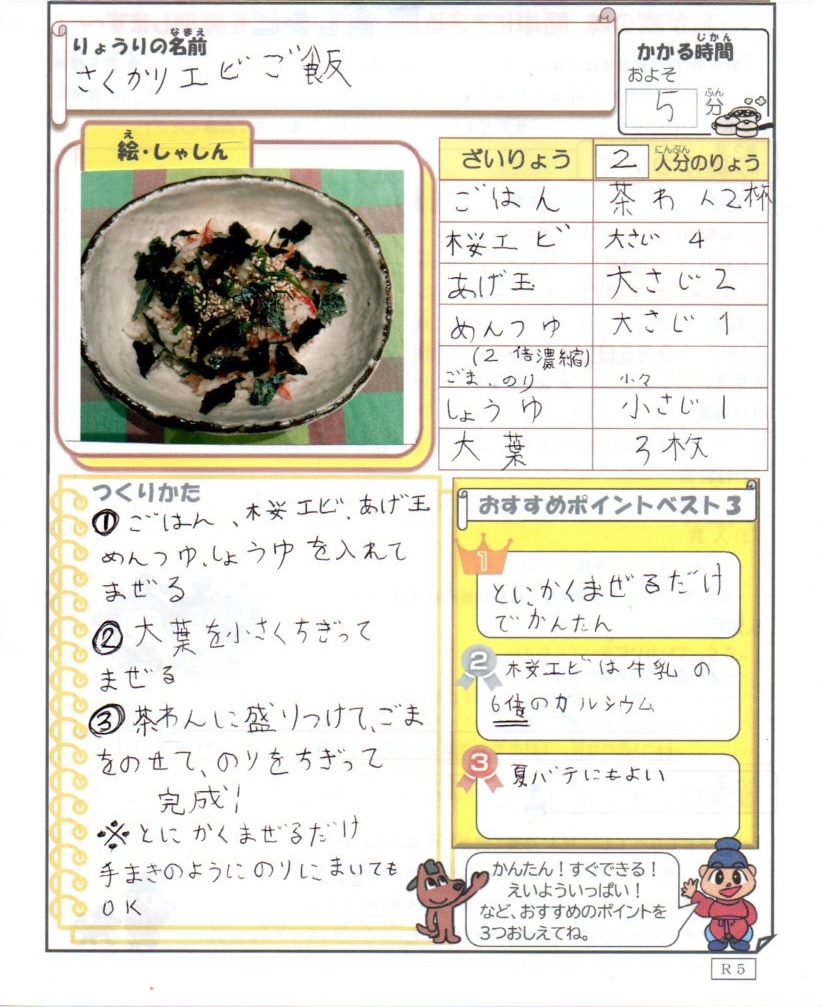 りょうりの名前
なまえ
さくかりエビご飯
かかる時間
じかん
およそ
5 分
ふん
絵・しゃしん
え
ざいりょう 2 人分のりょう
にんぶん
ごはん 茶わん2杯
桜エビ 大さじ 4
あげ玉 大さじ 2
めんつゆ 大さじ 1
(2倍濃縮)
ごま、のり 少々
しょうゆ 小さじ 1
大葉 3枚
つくりかた
① ごはん、桜エビ、あげ玉
めんつゆ、しょうゆを入れて
まぜる
② 大葉を小さくちぎって
まぜる
③ 茶わんに盛りつけて、ごま
をのせて、のりをちぎって
完成!
※とにかくまぜるだけ
手まきのようにのりにまいても
OK
おすすめポイントベスト3
1
とにかくまぜるだけ
でかんたん
2
桜エビは牛乳の
6倍のカルシウム
3
夏バテにもよい
かんたん!すぐできる!
えいよういっぱい!
など、おすすめのポイントを
3つおしえてね。
R5